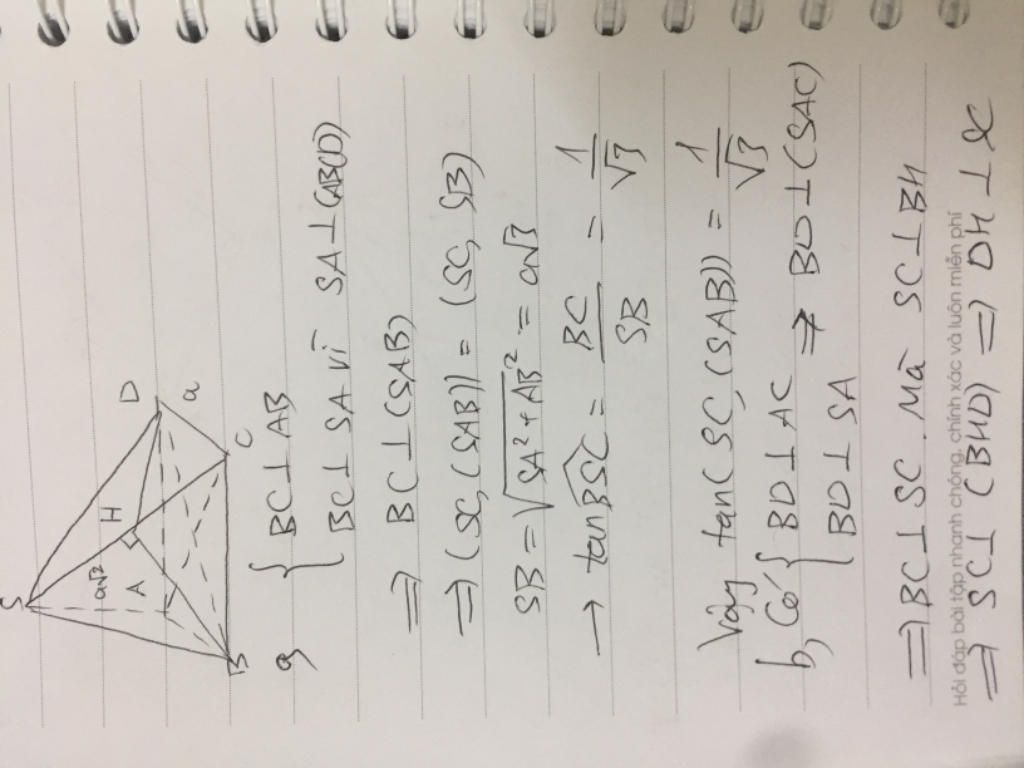 S
a√2
H
D
A
a
B
C
a, { BC ⊥ AB
BC ⊥ SA vì SA ⊥ (ABCD)
⇒ BC ⊥ (SAB)
⇒ (SC, (SAB)) = (SC, SB)
SB = √(SA² + AB²) = a√3
→ tan BSC = BC/SB = 1/√3
Vậy tan(SC, (SAB)) = 1/√3
b, Có { BD ⊥ AC
BD ⊥ SA ⇒ BD ⊥ (SAC)
⇒ BC ⊥ SC. Mà SC ⊥ BH
Hỏi đáp bài tập nhanh chóng, chính xác và luôn miễn phí
⇒ SC ⊥ (BHD) ⇒ DH ⊥ SC